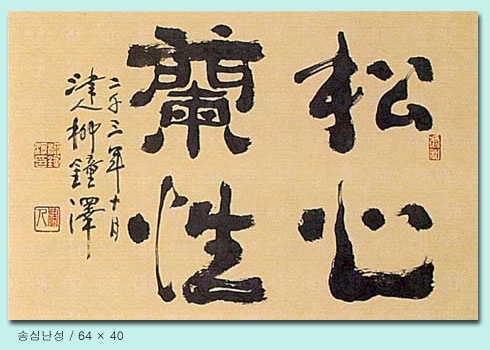 松心
蘭性
二千三年十月
人柳鐘澤
송심난성 / 64 × 40